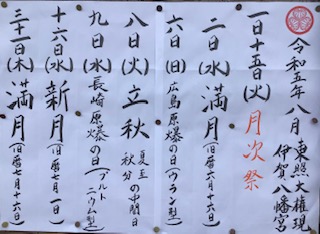 令和五年八月
東照大権現
伊賀八幡宮
一日十五日(火)月次祭
二日(水)満月(旧暦六月十六日)
六日(日)広島原爆の日(ウラン型)
八日(火)立秋 夏至秋分の中間日
九日(水)長崎原爆の日(プルトニウム型)
十六日(水)新月(旧暦七月一日)
三十一日(木)満月(旧暦七月十六日)